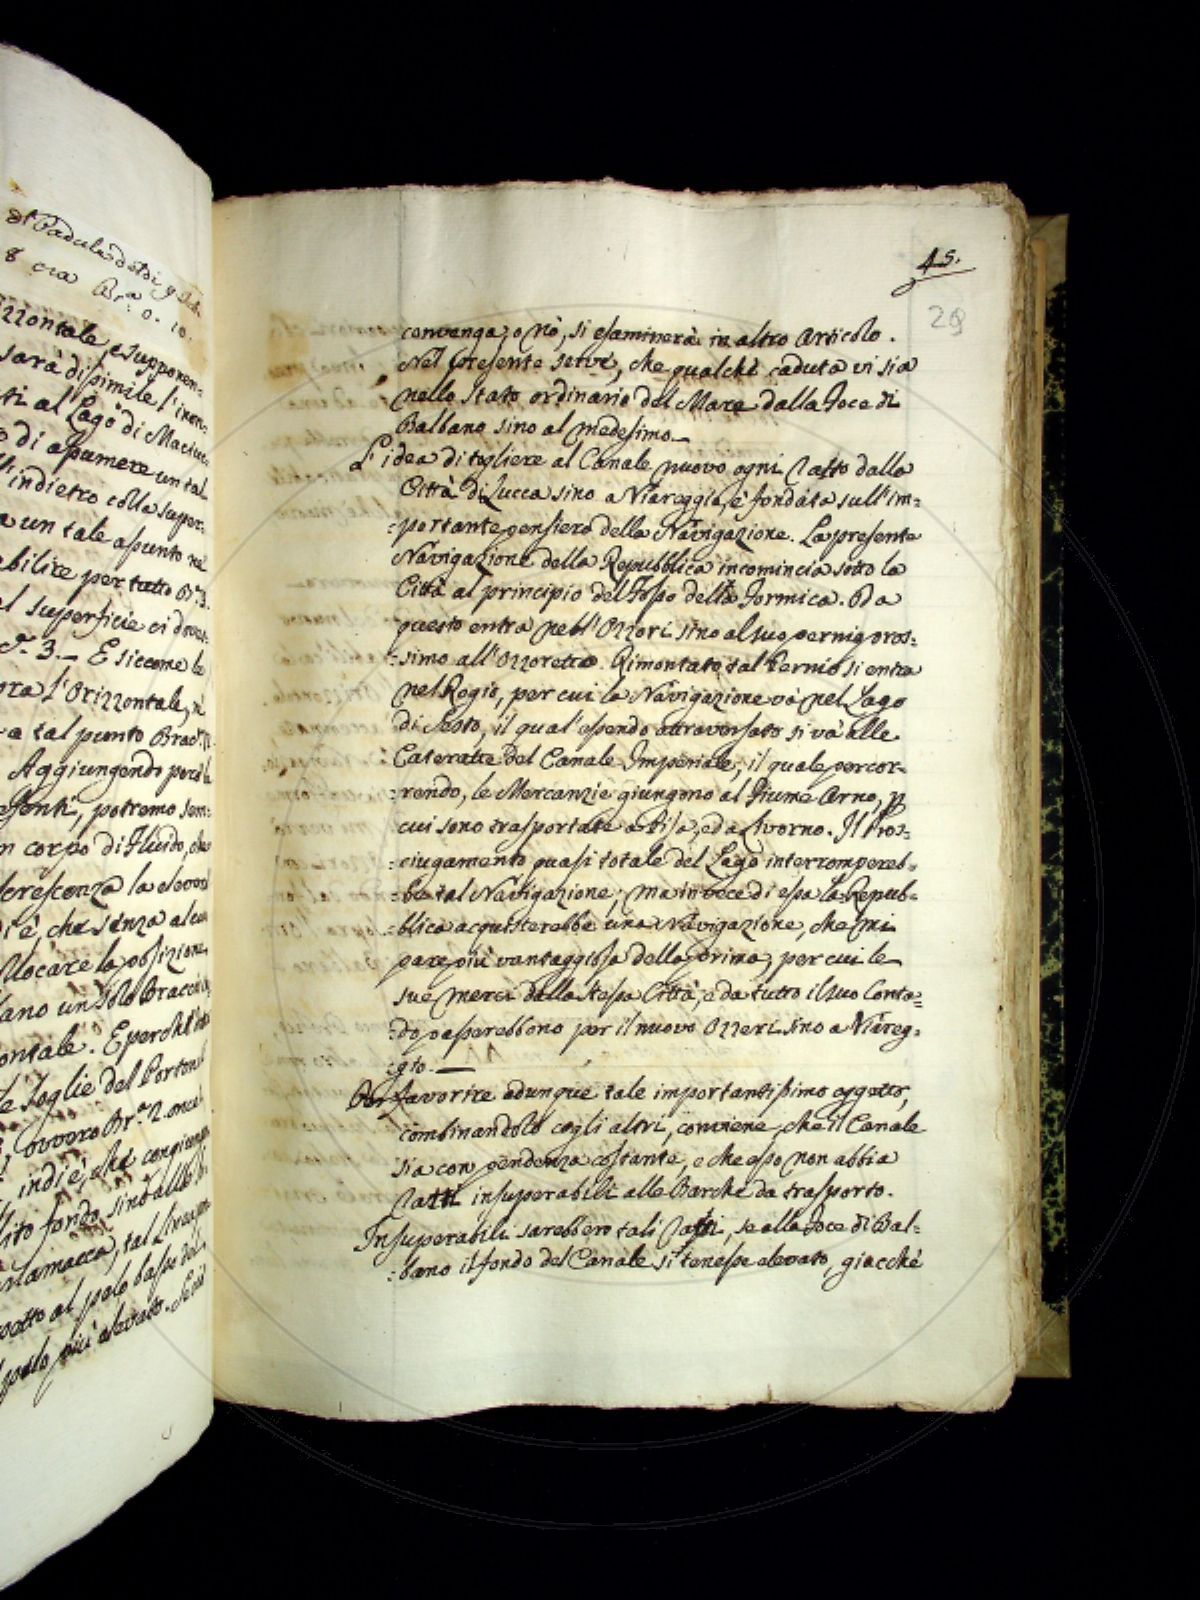 di Padule
8 ora Br.ᵃ 0. 10.
izzontale, e supponen-
sarà disimile l'inon-
ti al Lago di Maciuc-
o di assumere un tal
ll'indietro colla super-
a un tale assunto ne
abilire per tutto B.ᵃ 3.
superficie ci dovea
3._ E siccome le
ora l'Orizzontale, nè
a tal punto
Aggiungendo perciò
potremo sem-
n corpo di Fluido, che
crescenza la elevo
è che senza alcun
locare la posizione
ano un solo Braccio
ontale. E perchè
le soglie del Porton
ovvero Br.ᵃ 2. once
indie, che congiunga
lito fondo sino allo
tal Linea
sotto al pelo basso del
pelo più elevato. Se
45.
29
convenga, o nò, si esaminerà in altro Articolo.
Nel presente serve, che qualche caduta vi sia
nello Stato ordinario del Mare dalla Foce di
Balbano sino al medesimo._
L'idea di togliere al Canale nuovo ogni Salto dalla
Città di Lucca sino a Viareggio, è fondata sull'im-
:portante pensiero della Navigazione. La presente
Navigazione della Repubblica incomincia sotto la
Città al principio del Fosso della Formica. Da
questo entra nell'Ozzori sino al suo pernio pros-
:simo all'Ozzoretto. Rimontato tal Pernio si entra
nel Rogio, per cui la Navigazione và nel Lago
di Sesto, il qual'essendo attraversato si và alle
Cateratte del Canale Imperiale, il quale percor-
:rendo, le Mercanzie giungono al Fiume Arno, p
cui sono trasportate a Pisa, ed a Livorno. Il Pros-
:ciugamento quasi totale del Lago interrompereb-
:be tal Navigazione; ma invece di essa la Repub-
:blica acquisterebbe una Navigazione, che mi
pare più vantaggiosa della prima, per cui le
sue merci dalla stessa Città, e da tutto il suo Conta-
:do passerebbono per il nuovo Ozzeri sino a Viareg-
:gio._
Per favorire adunque tale importantissimo oggetto,
combinandolo cogli altri, conviene, che il Canale
sia con pendenza costante, e che esso non abbia
Salti insuperabili alle Barche da trasporto.
Insuperabili sarebbero tali Salti, se alla Foce di Bal-
:bano il fondo del Canale si tenesse elevato, giacchè